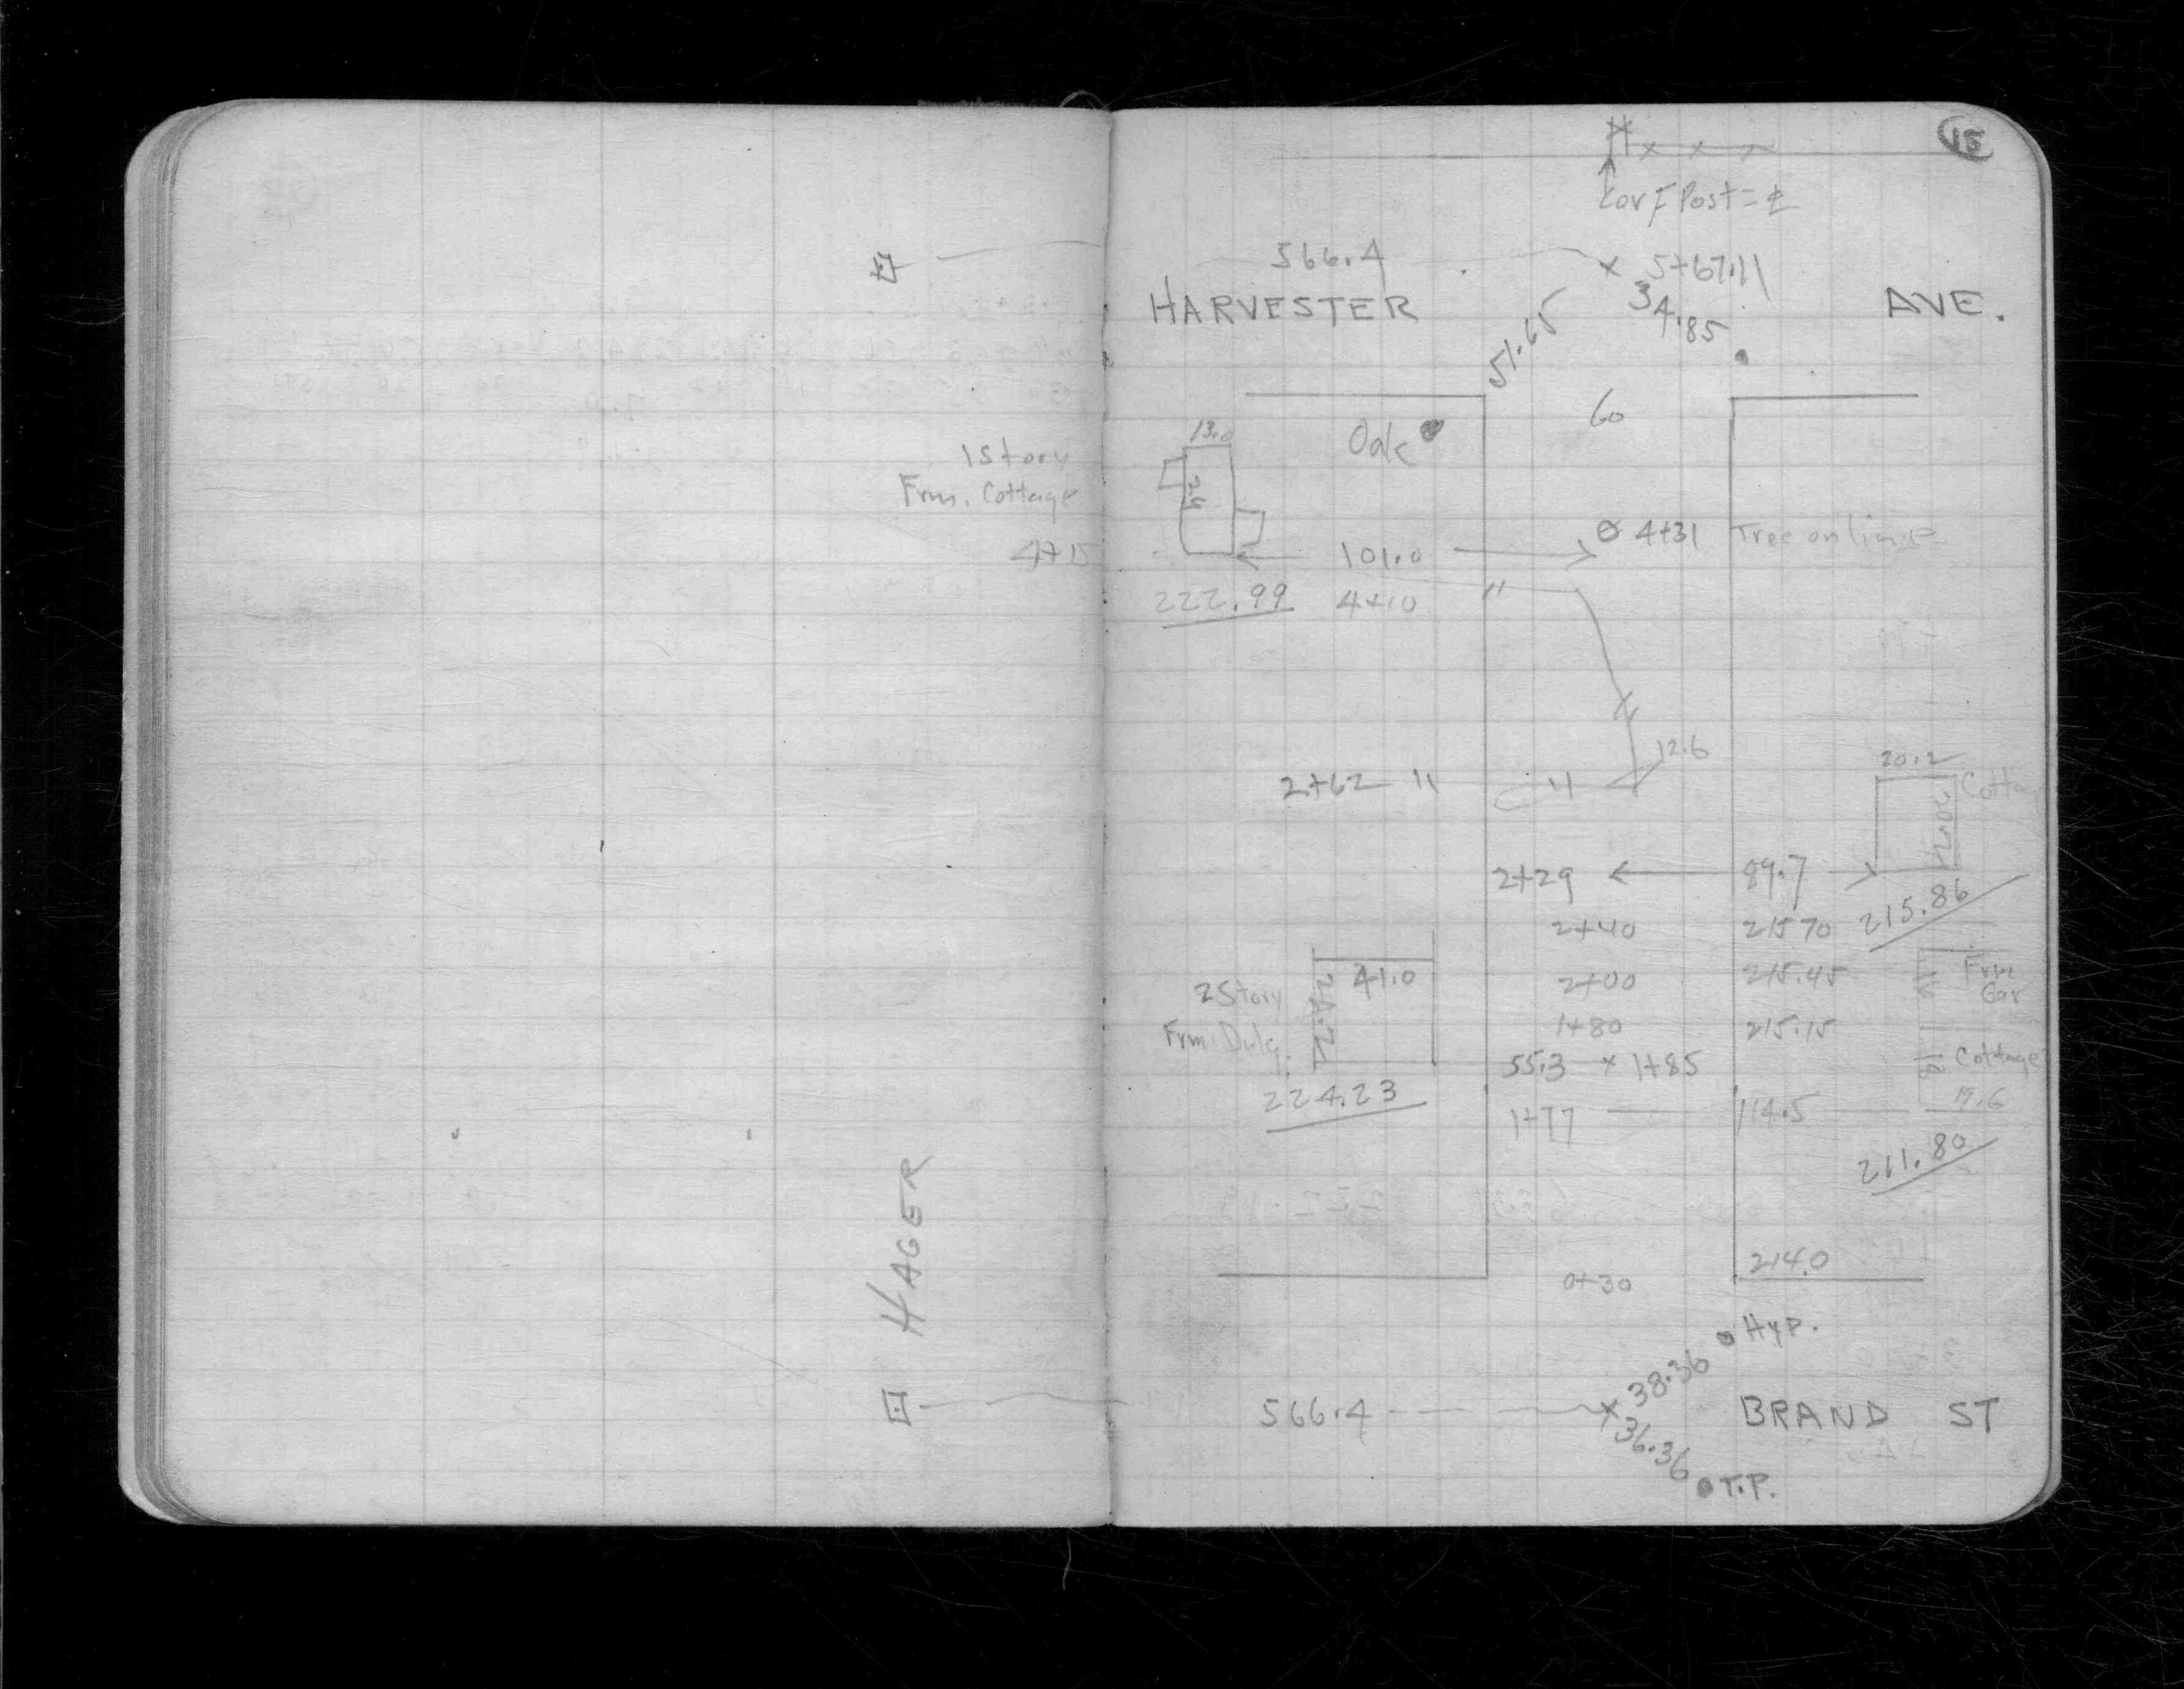 15
Cor F Post = ⅊
566.4 x 5+67.11
HARVESTER AVE.
34.85
51.65
60
13.0 Oak
1 Story
Frm. Cottage
24
4+15 101.0 4+31 Tree on line
222.99 4+10 "
12.6
2+62 " "
20.2
20.2
2+29 89.7
215.86
2+40 215.70
2+00 215.45
1+80 215.15
41.0
24.2
2 Story
Frm. Dwlg.
Frm
Gar
55.3 x 1+85
Cottage
224.23
1+77 114.5
211.80
214.0
0+30
HAGER
Hyp.
38.36
566.4 x BRAND ST
36.36
T.P.